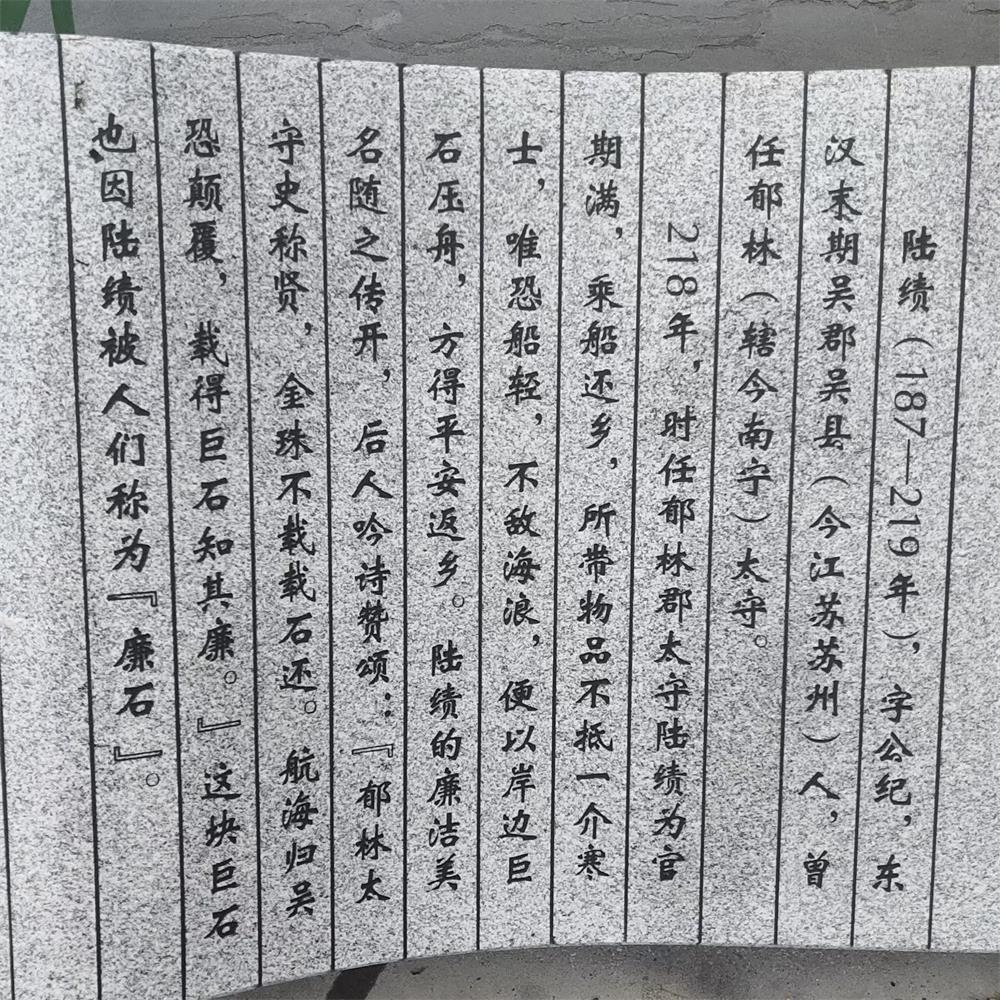 陆绩（187—219年），字公纪，东
汉末期吴郡吴县（今江苏苏州）人，曾
任郁林（辖今南宁）太守。
218年，时任郁林郡太守陆绩为官
期满，乘船还乡，所带物品不抵一介寒
士，唯恐船轻，不敌海浪，便以岸边巨
石压舟，方得平安返乡。陆绩的廉洁美
名随之传开，后人吟诗赞颂：『郁林太
守史称贤，金珠不载载石还。航海归吴
恐颠覆，载得巨石知其廉。』这块巨石
也因陆绩被人们称为『廉石』。